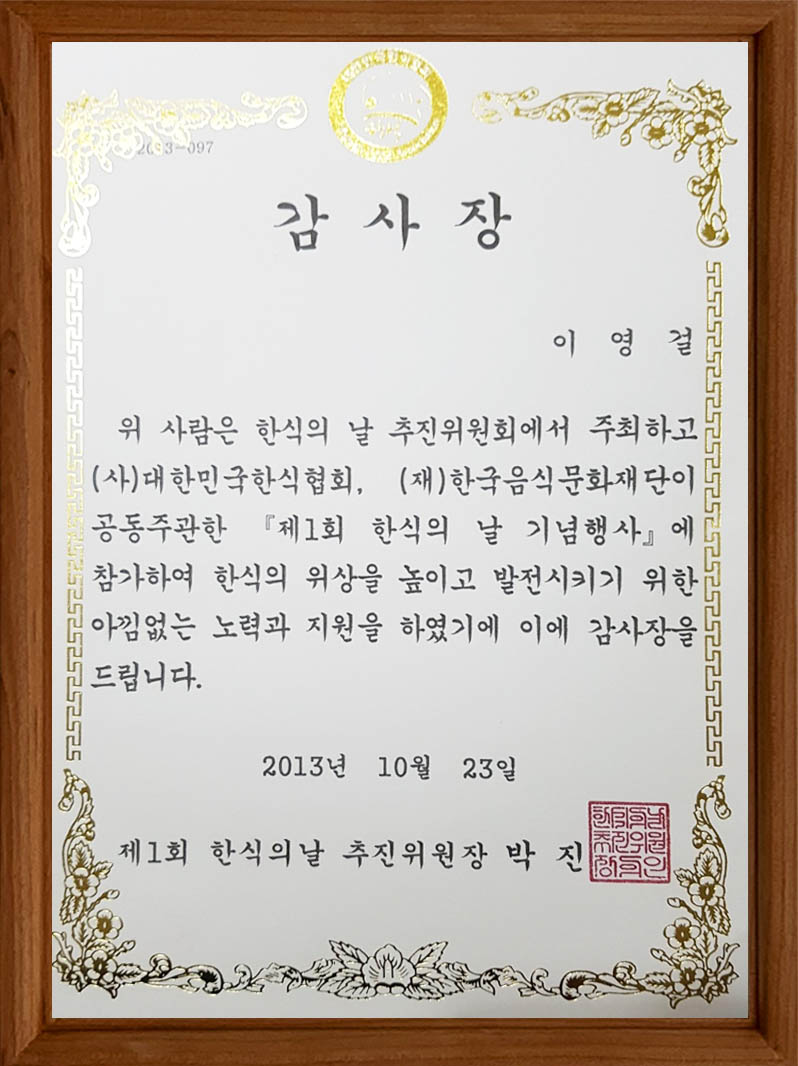 감 사 장
이 영 걸
위 사람은 한식의 날 추진위원회에서 주최하고
(사)대한민국한식협회, (재)한국음식문화재단이
공동주관한 『제1회 한식의 날 기념행사』에
참가하여 한식의 위상을 높이고 발전시키기 위한
아낌없는 노력과 지원을 하였기에 이에 감사장을
드립니다.
2013년 10월 23일
제1회 한식의날 추진위원장 박 진